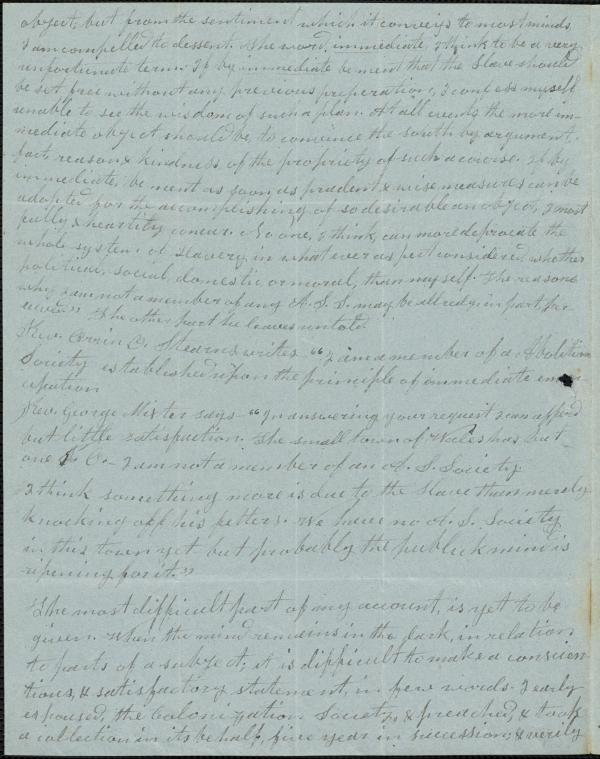 object, but from the sentiment which it conveys to most minds
I am compelled to dessent. The word, immediate, I think to be a very
unfortunate term. If by immediate be ment that the Slave should
be set free without any previous preparation, I confess myself
unable to see the wisdom of such a plan. At all events the more im-
mediate object should be to convince the south by argument,
fact, reason & kindness, of the propriety of such a course. If by
immediate, be ment as soon as prudent & wise measures can be
adopted for the accomplishing of so desirable an object, I most
fully & heartily concur. No one, I think, can more deprecate the
whole system of slavery, in what ever aspect considered, whether
political, social, domestic or moral, than myself. The reasons
why I am not a member of any A. S. S. may be allredy in part per-
ceived." The other part he leaves untold.
Rev. Orrin O. Stearns writes "I am a member of an Abolition
Society established upon the principle of immediate eman
cipation
Rev. George Mixter says "In answering your request I can afford
but little satisfaction. The small town of Wales has but
one C. I am not a member of an A. S. Society
I think something more is due to the Slave than merely
knocking off his fetters. We have no A. S. Society
in this town yet but probably the publick mind is
ripening for it."
The most difficult part of my account, is yet to be
given. When the mind remains in the dark, in relation
to parts of a subject; it is difficult to make a conscien
tious, & satisfactory statement, in few words. I early
espoused, the Colonization Society, & preached, & took
a collection in its behalf, five year in succession; & verily